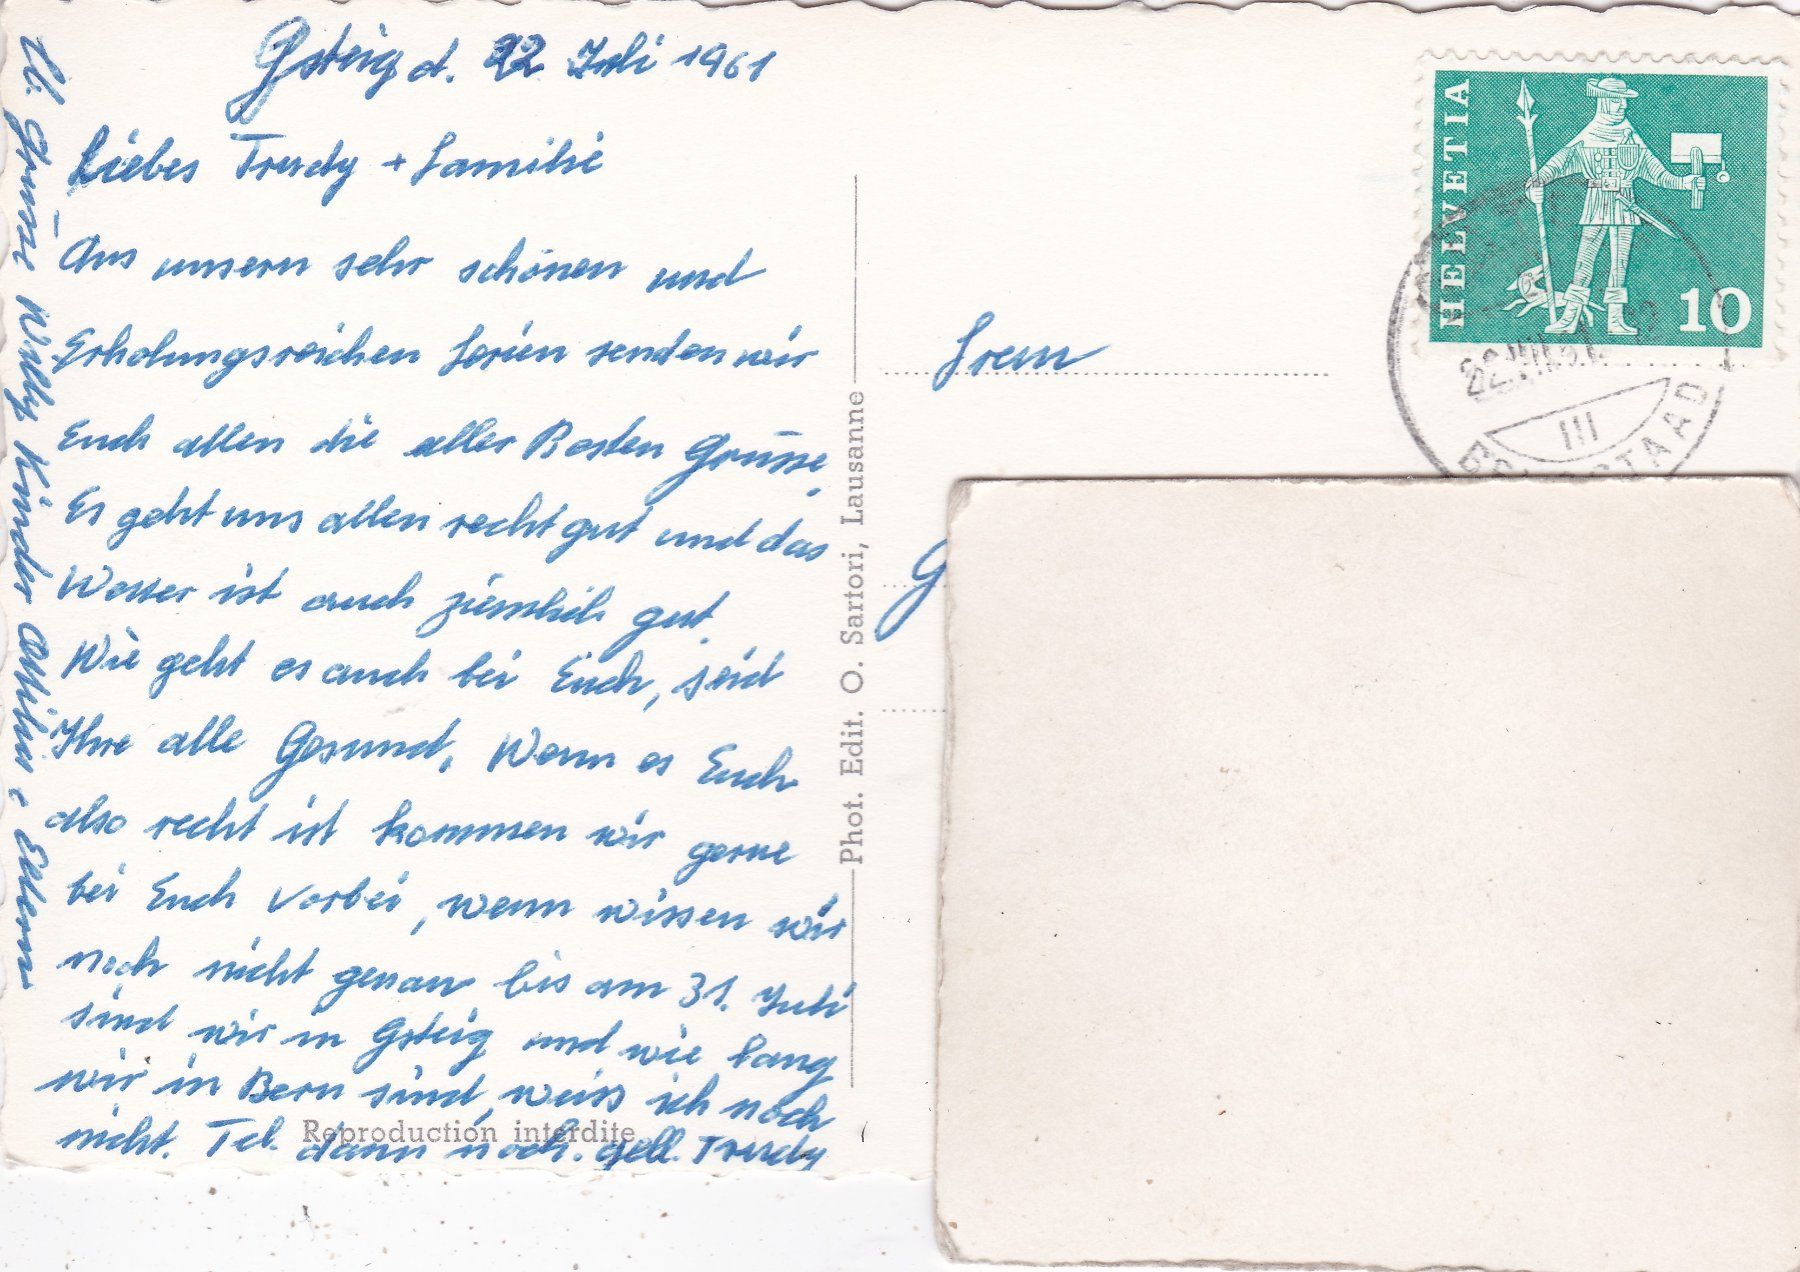 Gsteig d. 22 Juli 1961
Liebes Trudy + Familie
Aus unsern sehr schönen und
Erholungsreichen Ferien senden wir
Euch allen die aller Besten Grüsse,
Es geht uns allen recht gut und das
Wetter ist auch ziemlich gut.
Wie geht es auch bei Euch, seid
Ihre alle Gesund, Wenn es Euch
also recht ist kommen wir gerne
bei Euch vorbei, wenn wissen wir
noch nicht genau bis am 31. Juli
sind wir in Gsteig und wie lang
wir in Bern sind, weiss ich noch
nicht. Tel. dann noch. gell. Trudy
Grüsse Willy Kinder Eltern
Phot. Edit. O. Sartori, Lausanne
Reproduction interdite
HELVETIA
10
22.VII.61
III
GSTAAD
G